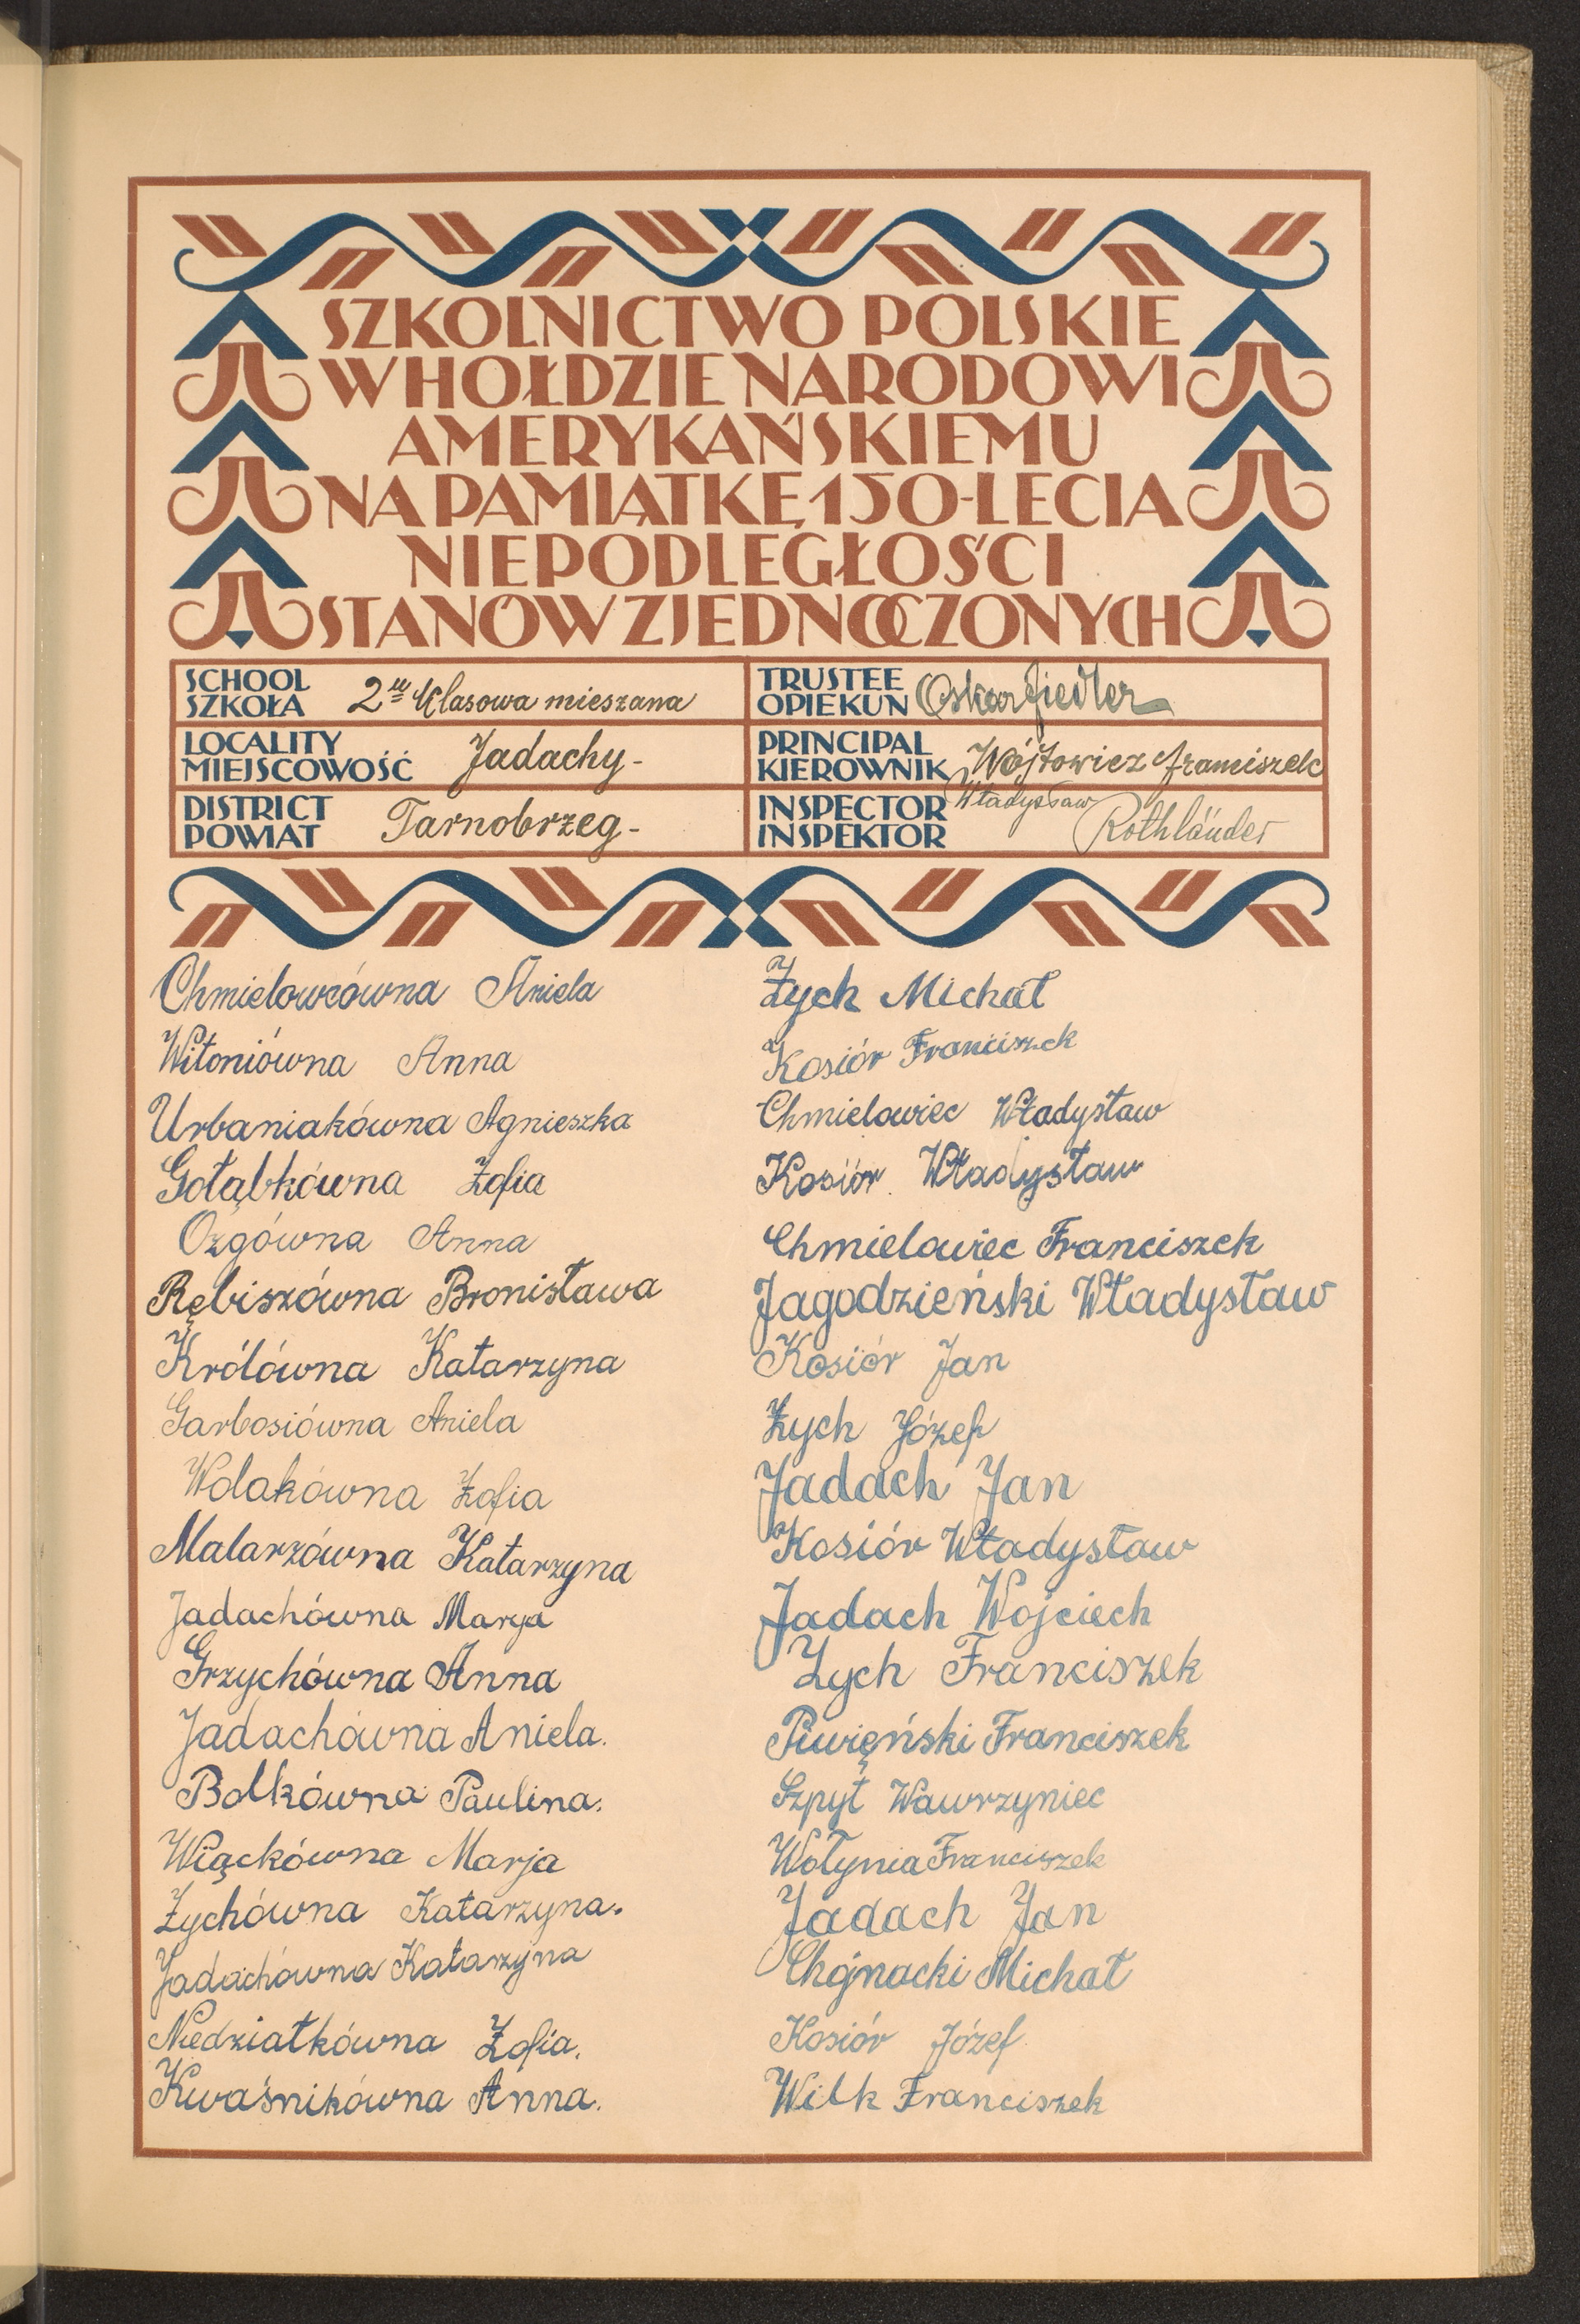 SZKOLNICTWO POLSKIE
W HOŁDZIE NARODOWI
AMERYKAŃSKIEMU
NA PAMIĄTKĘ 150-LECIA
NIEPODLEGŁOŚCI
STANÓW ZJEDNOCZONYCH
SCHOOL
SZKOŁA 2u Klasowa mieszana
LOCALITY
MIEJSCOWOŚĆ Jadachy-
DISTRICT
POWIAT Tarnobrzeg-
TRUSTEE
OPIEKUN Oskar Fiedler
PRINCIPAL
KIEROWNIK Wójtowicz Franciszek
INSPECTOR
INSPEKTOR Władysław Rothländer
Chmielowcówna Aniela
Witoniówna Anna
Urbaniakówna Agnieszka
Gołąbkówna Zofia
Ożgówna Anna
Rębiszówna Bronisława
Królówna Katarzyna
Garbosiówna Aniela
Wolakówna Zofia
Malarzówna Katarzyna
Jadachówna Marya
Grzychówna Anna
Jadachówna Aniela.
Bolkówna Paulina.
Wiąckówna Marja
Zychówna Katarzyna.
Jadachówna Katarzyna
Niedziałkówna Zofia.
Kwaśnikówna Anna.
Zych Michał
Kosiór Franciszek
Chmielowiec Władysław
Kosiór Władysław
Chmielowiec Franciszek
Jagodzieński Władysław
Kosiór Jan
Zych Józef
Jadach Jan
Kosiór Władysław
Jadach Wojciech
Zych Franciszek
Piwięński Franciszek
Szpyt Wawrzyniec
Wołynia Franciszek
Jadach Jan
Chojnacki Michał
Kosiór Józef
Wilk Franciszek